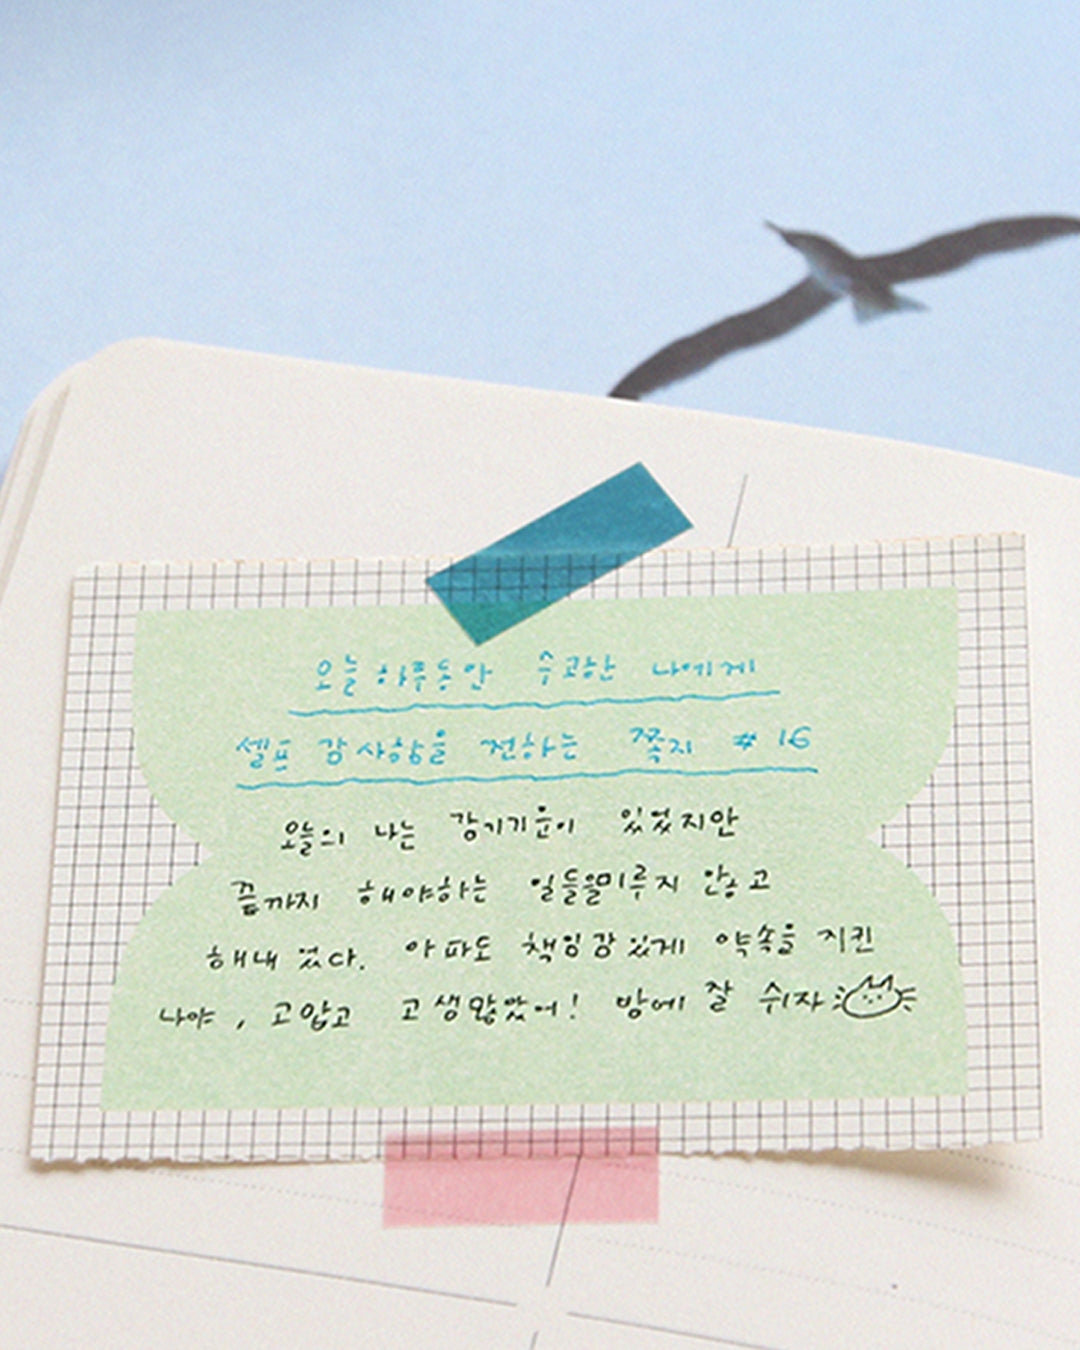 오늘 하루동안 수고한 나에게
셀프 감사함을 전하는 쪽지 #16
오늘의 나는 감기기운이 있었지만
끝까지 해야하는 일들을미루지 않고
해내었다. 아파도 책임감있게 약속을 지킨
나야, 고맙고 고생많았어! 밤에 잘 쉬자